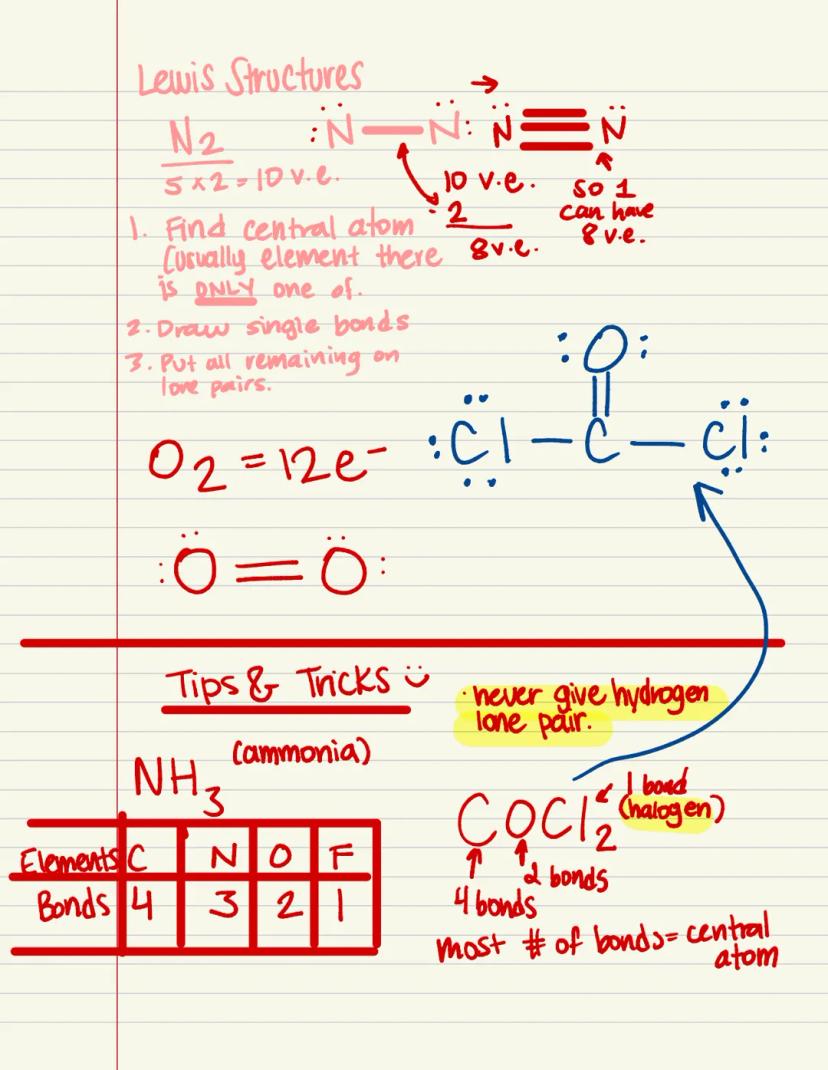 Lewis Structures
N2
5 x 2 = 10 v.e.
:N̈ — N̈: → N̈ ≡ N̈
10 v.e.
- 2
8 v.e.
so 1
can have
8 v.e.
1. Find central atom
(usually element there
is ONLY one of.
2. Draw single bonds
3. Put all remaining on
lone pairs.
O2 = 12e-
:Ö = Ö:
:O:
:Cl — C — Cl:
Tips & Tricks
· never give hydrogen
lone pair.
NH3 (ammonia)
Elements C N O F
Bonds 4 3 2 1
COCl2
1 bond
(halogen)
2 bonds
4 bonds
most # of bonds = central
atom